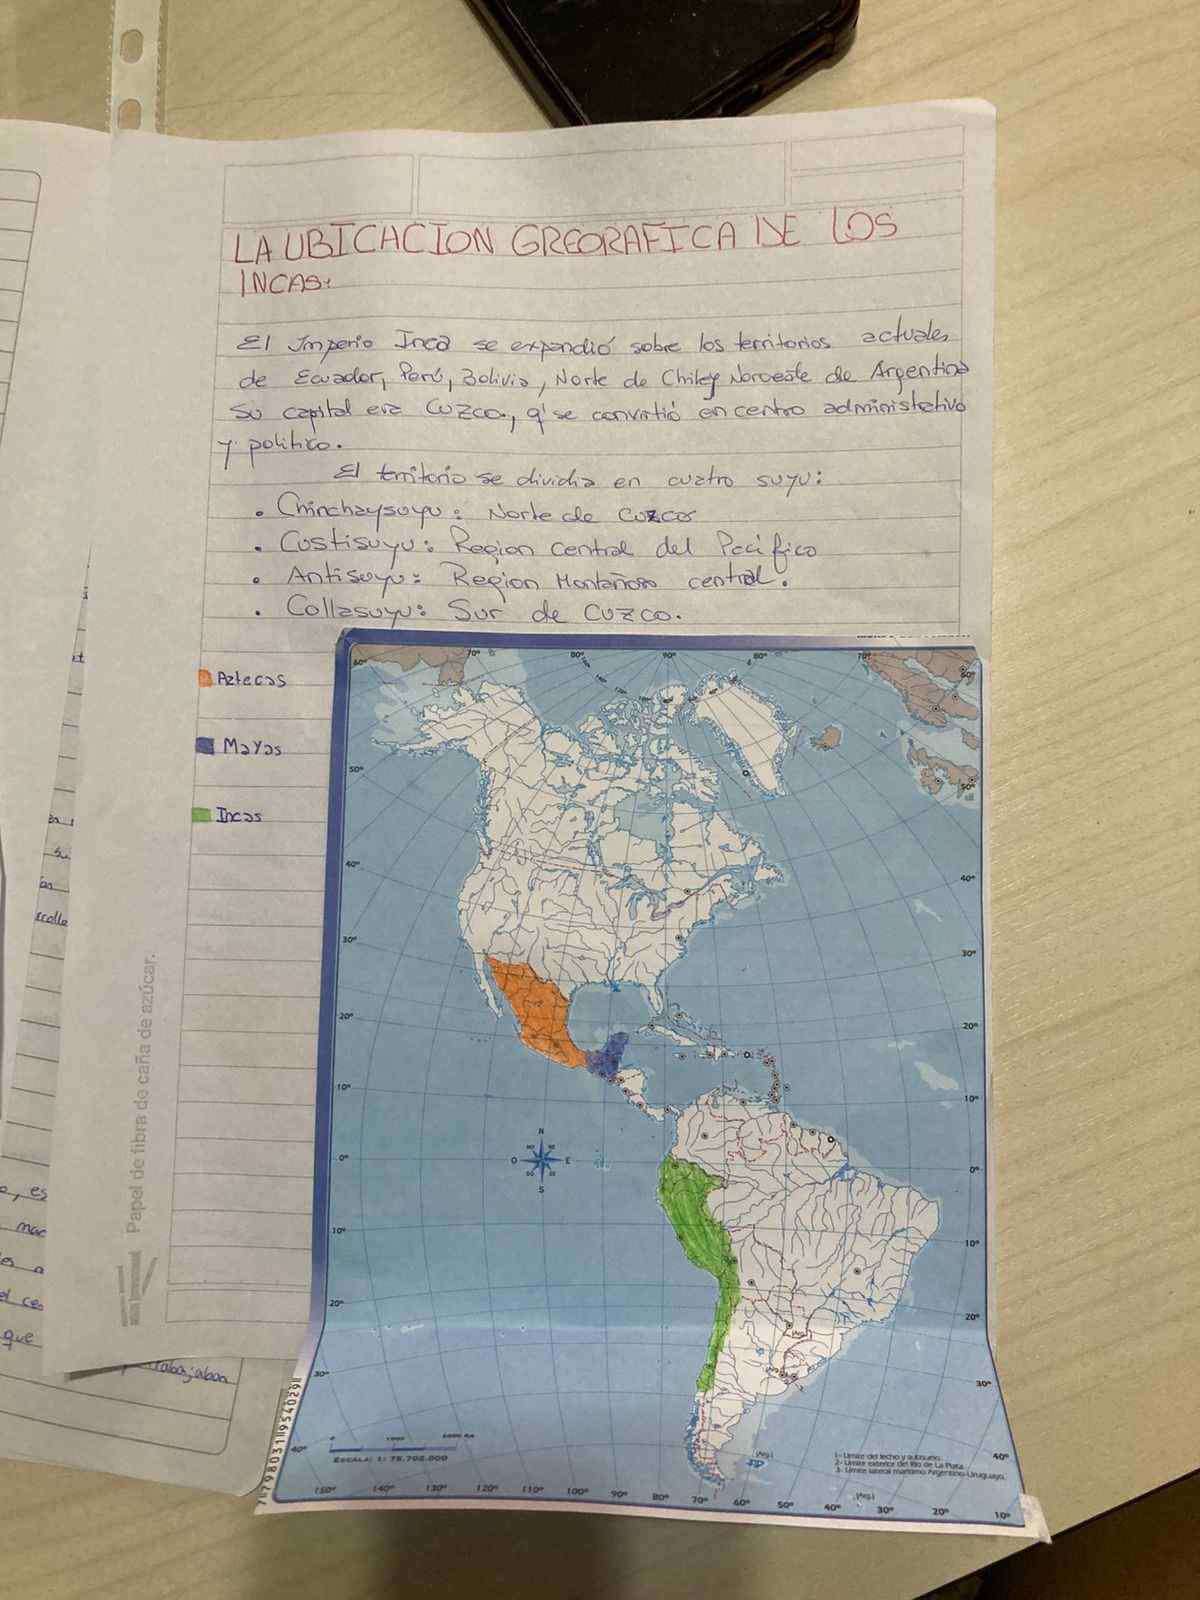 LA UBICACION GREORAFICA DE LOS
INCAS:
El Imperio Inca se expandió sobre los territorios actuales
de Ecuador, Perú, Bolivia, Norte de Chile y Noroeste de Argentina
Su capital era Cuzco., q' se convirtió en centro administrativo
y politico.
El territorio se dividia en cuatro suyu:
• Chinchaysuyu: Norte de Cuzco
• Custisuyu: Region central del Pacifico
• Antisuyu: Region Montañosa central.
• Collasuyu: Sur de Cuzco.
Aztecas
Mayas
Incas
Papel de fibra de caña de azúcar.
60° 70° 80° 90° 80° 70° 60°
50° 50°
40° 40°
30° 30°
20° 20°
10° 10°
0° 0°
10° 10°
20° 20°
30° 30°
40° 40°
N
NO NE
O E
SO SE
S
(Arg.)
0 1000 2000 Km
ESCALA: 1: 75.705.000
1- Límite del lecho y subsuelo.
2- Límite exterior del Río de La Plata.
3- Límite lateral marítimo Argentino-Uruguayo.
150° 140° 130° 120° 110° 100° 90° 80° 70° 60° 50° 40° 30° 20° 10°
7 798031 954029
trabajaban
que
mar